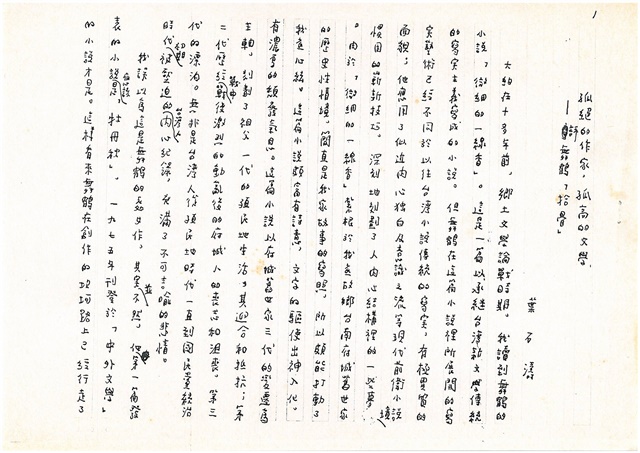 1
孤絕的作家,孤高的文學
——評舞鶴「拾骨」
葉石濤
大約在十多年前,鄉土文學論戰時期,我讀到舞鶴的
小說「微細的一線香」。這是一篇以承繼台灣新文學傳統
的寫實主義寫成的小說。但舞鶴在這篇小說裡所展開的寫
實藝術已經不同於以往台灣小說傳統的寫實,有極異質的
面貌;他應用了似近內心獨白及意識之流等現代前衛小說
慣用的嶄新技巧,深刻地刻劃了人內心結構裡的一些夢境
。由於「微細的一線香」紮根於我的故鄉台南府城舊世家
的歷史性情境,簡直是我家故事的寫照,所以頗能打動了
我的心絃。這篇小說頗富有詩意,文字的驅使出神入化。
有濃厚的頹廢氣息。這篇小說以府城舊世家三代的變遷為
主軸,刻劃了祖父一代的殖民地生活,其迎合和抵抗;第
二代歷經戰中戰後激烈的動亂後的府城人的喪志和沮喪。第三
代的漂泊。無非是台灣人從殖民地時代一直到國民黨統治
時代初期被壓迫的台灣人內心紀錄,充滿了不可言喻的悲情。
我誤以為這是舞鶴的處女作。其實並不然,他第一篇發
表的小說應該是「牡丹秋」,一九七五年刊登於「中外文學」
的小說才是。這樣看來舞鶴在創作的坎坷路上已經行走了